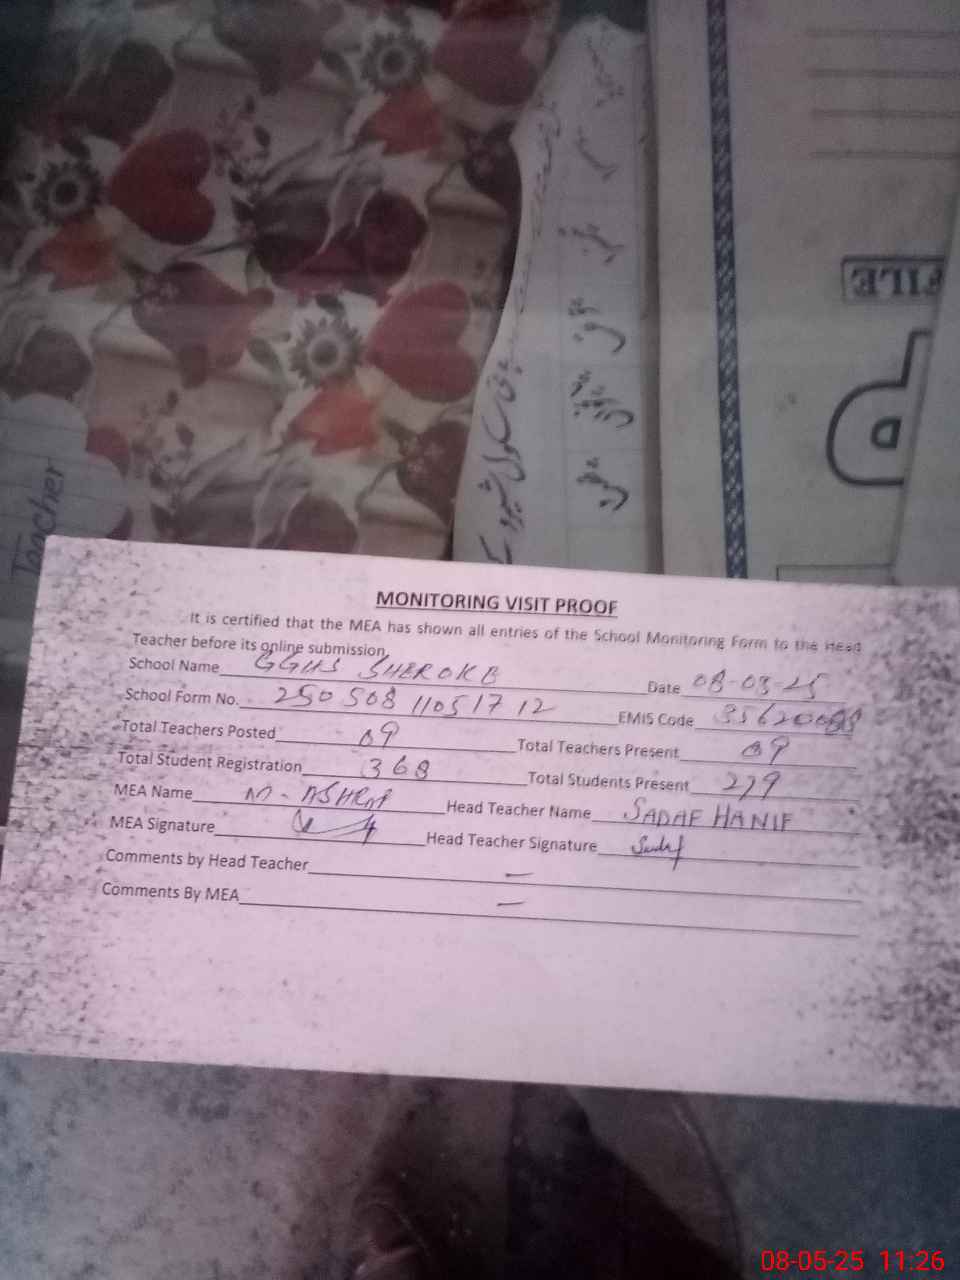 FILE
Teacher
MONITORING VISIT PROOF
It is certified that the MEA has shown all entries of the School Monitoring Form to the Head
Teacher before its online submission.
School Name GGHS SHEROKE Date 08-05-25
School Form No. 250508110517 12 EMIS Code
Total Teachers Posted 09 Total Teachers Present 09
Total Student Registration 368 Total Students Present 279
MEA Name M-ASHRAF Head Teacher Name SADAF HANIF
MEA Signature Head Teacher Signature Sadaf
Comments by Head Teacher —
Comments By MEA —
08-05-25 11:26